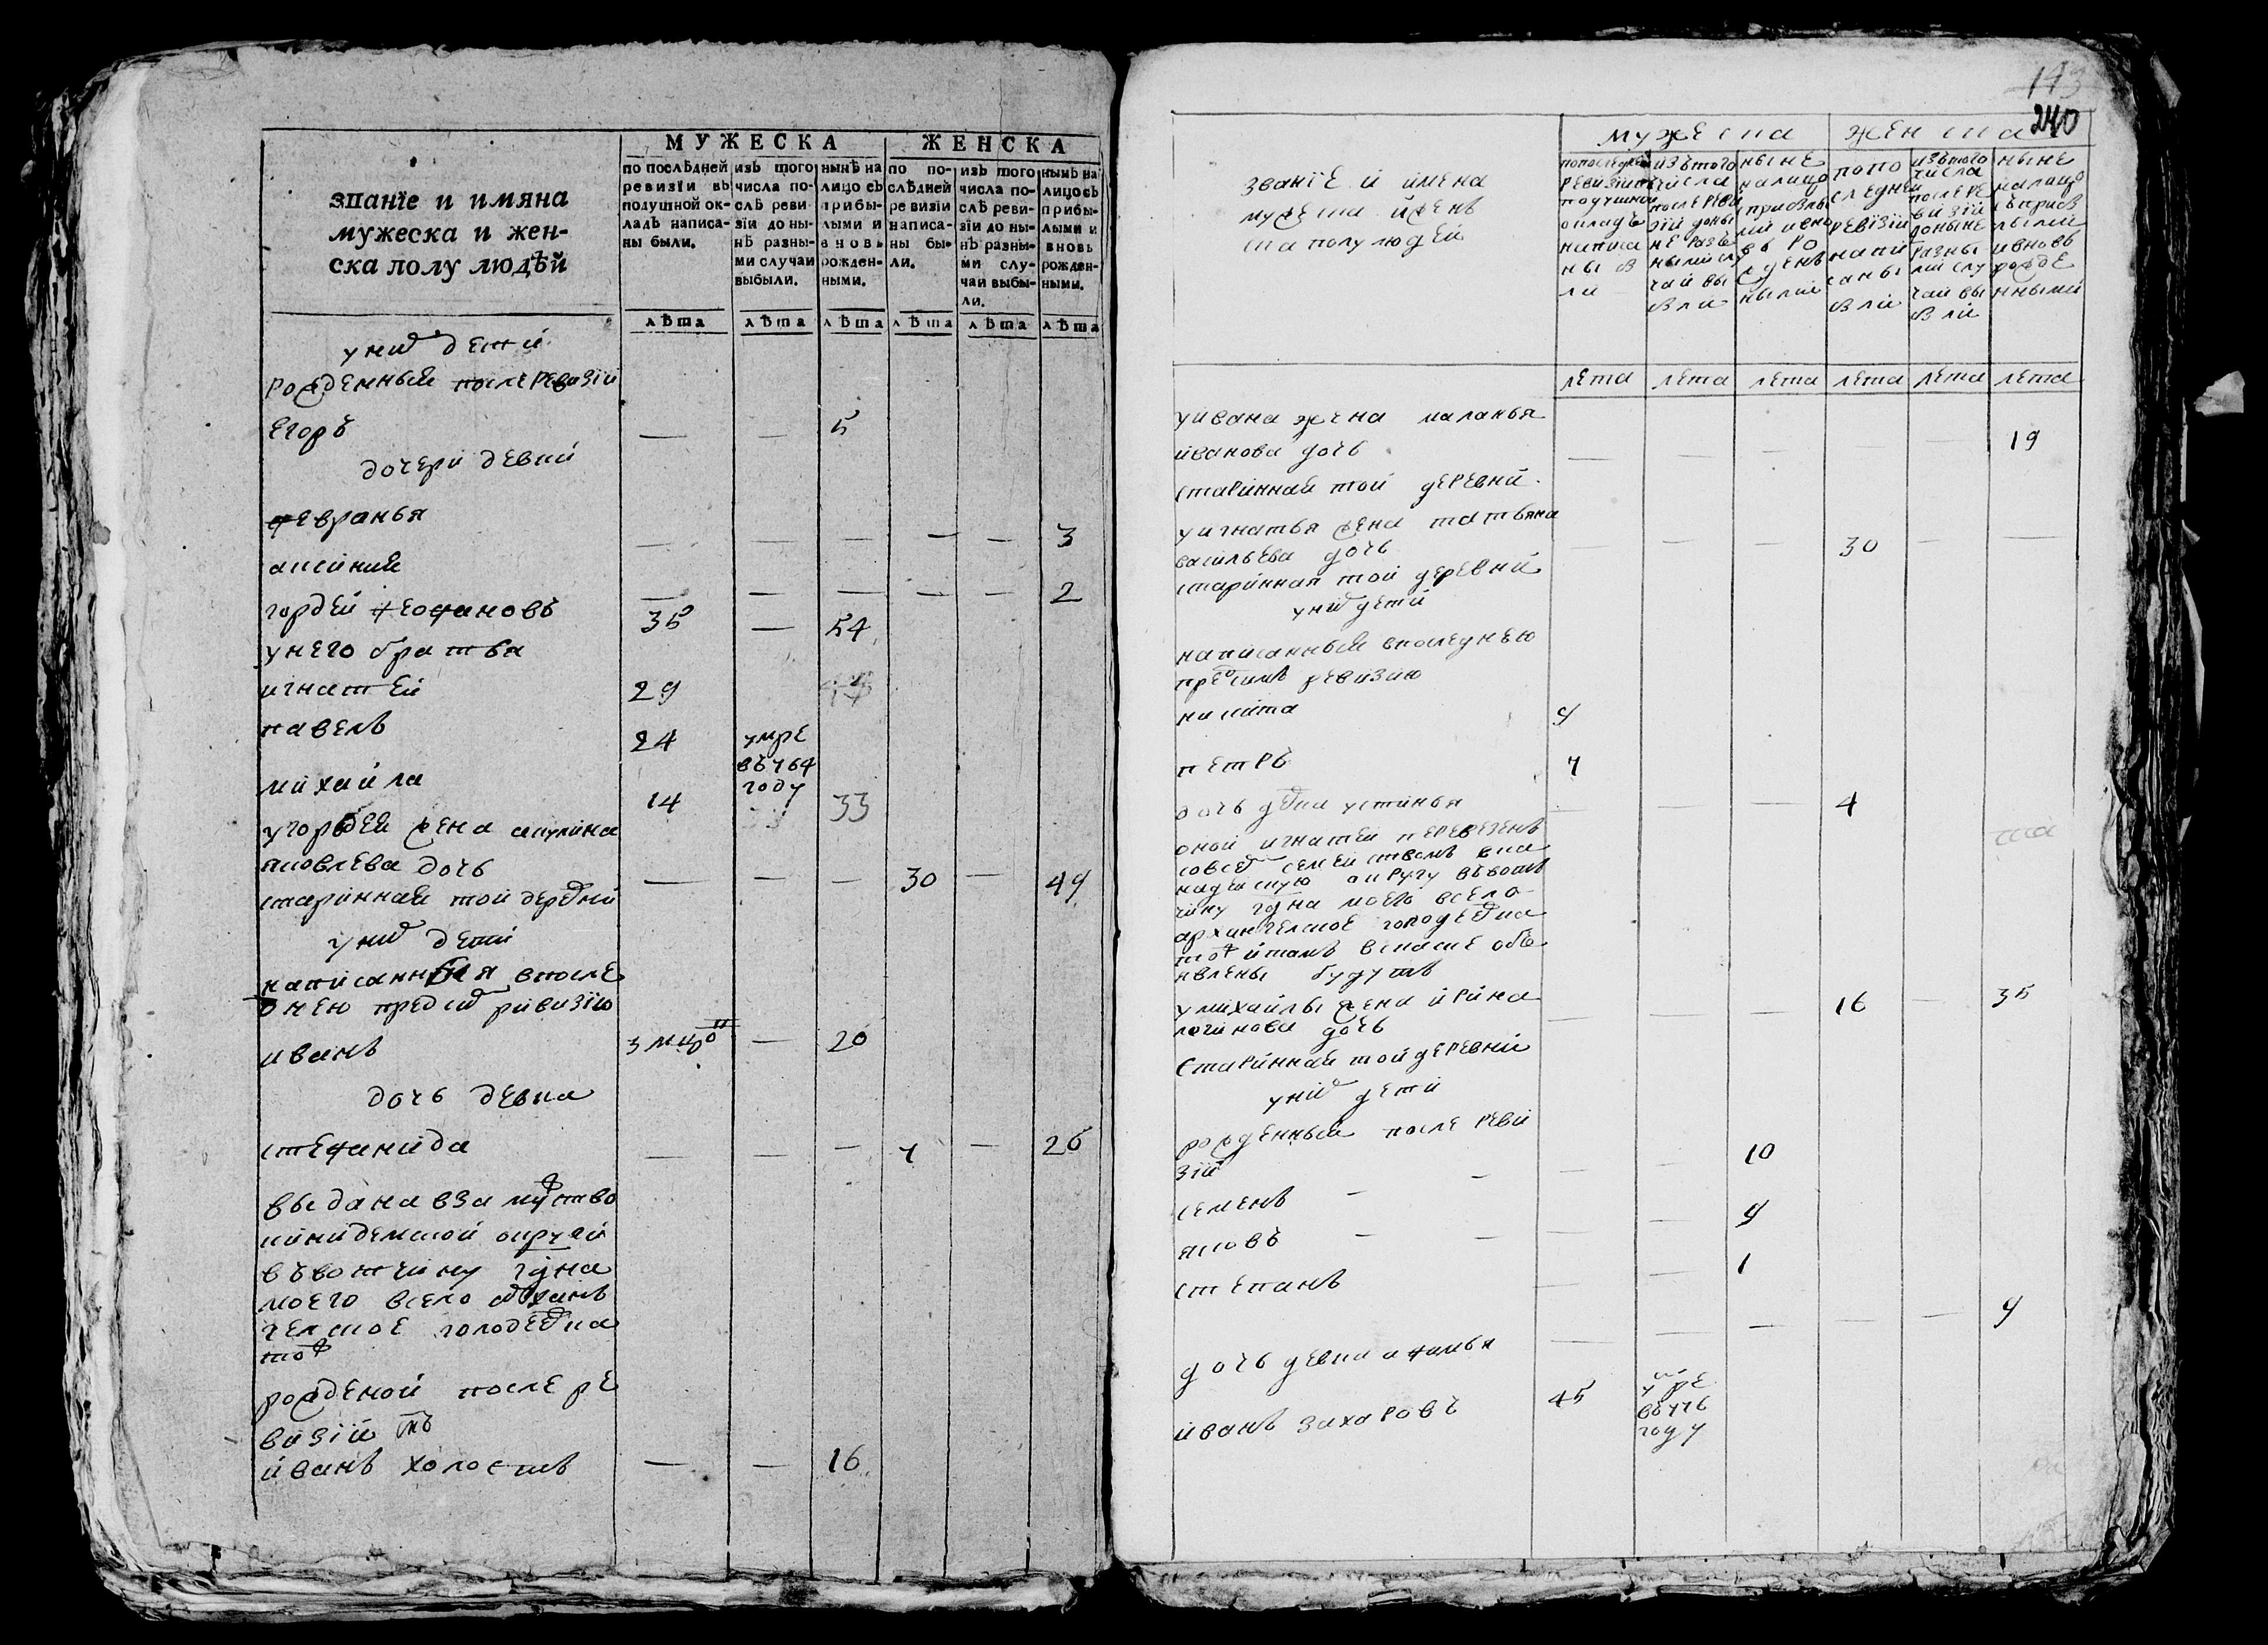 МУЖЕСКА
ЖЕНСКА
званїе и имяна
мужеска и жен-
ска полу людѣй
по послѣдней
ревизїи въ
подушной ок-
ладъ написа-
ны были.
изъ того
числа по-
слѣ реви-
зїи до ны-
нѣ разны-
ми случаи
выбыли.
нынѣ на
лицо съ
прибы-
лыми и
вновь
рожден-
ными.
по по-
слѣдней
ревизїи
написа-
ны бы-
ли.
изъ того
числа по-
слѣ реви-
зїи до ны-
нѣ разны-
ми слу-
чаи выбы-
ли.
нынѣ на
лицо съ
прибы-
лыми и
вновь
рожден-
ными.
лѣта лѣта лѣта лѣта лѣта лѣта
у них дети
рожденныя после ревизїи
егоръ — — 5
дочери девки
февранья — — — — — 3
аксиния — — — — — 2
гордей феофановъ 35 — 54
у него братья
игнатей 29
павелъ 24 умре
въ 764
году
михайла 14 33
у гордея жена акулина
яковлева дочь — — — 30 — 49
старинная той деревни
у них дети
написанныя в после
днею пред сим ривизїю
иванъ 3 — 20
дочь девка
стефанида — — — 7 — 26
выдана в замужство
кинидемской округи
въ вотчину гдна
моего в село архан
гелское голодевка
то ж
рожденой после ре
визїи
иванъ холостъ — — 16
173
240
мужеска женска
званїе и имена
мужеска и женъ
ска полу людей
по последней
ревизїи въ
подушной
окладъ
написа
ны бы
ли
изъ того
числа
после реви
зїи доны
не разъ
ными слу
чаи вы
были
ныне
налицо
с прибылы
ми и вно
въ ро
жденъ
ными
по по
следней
ревизїи
напи
саны
были
изъ того
числа
после ре
визїи
доныне
разны
ми слу
чаи вы
были
ныне
налицо
съ приб
ылыми
и вновь
рожде
нными
лета лета лета лета лета лета
у ивана жена маланья
иванова дочь — — — — — 19
старинная той деревни
у игнатья жена татьяна
васильева дочь — — — 30 — —
старинная той деревни
у них дети
написанныя в последнею
пред симъ ревизїю
никита 9
петръ 7
дочь девка устинья — — — 4
оной игнатей перевезенъ
со всем семействомъ в ка
надейскую округу въ вотъ
чину гдна моего в село
архангелское голодевка
то ж и тамъ в скаске объ
явлены будутъ
у михайлы жена ирина
логинова дочь — — — 16 — 35
старинная той деревни
у них дети
рожденныя после реви
зїи
семенъ — — 10
яковъ — — 9
степанъ — — 1
дочь девка афимья — — — — — 9
иванъ захаровъ 45 умре
въ 776
году